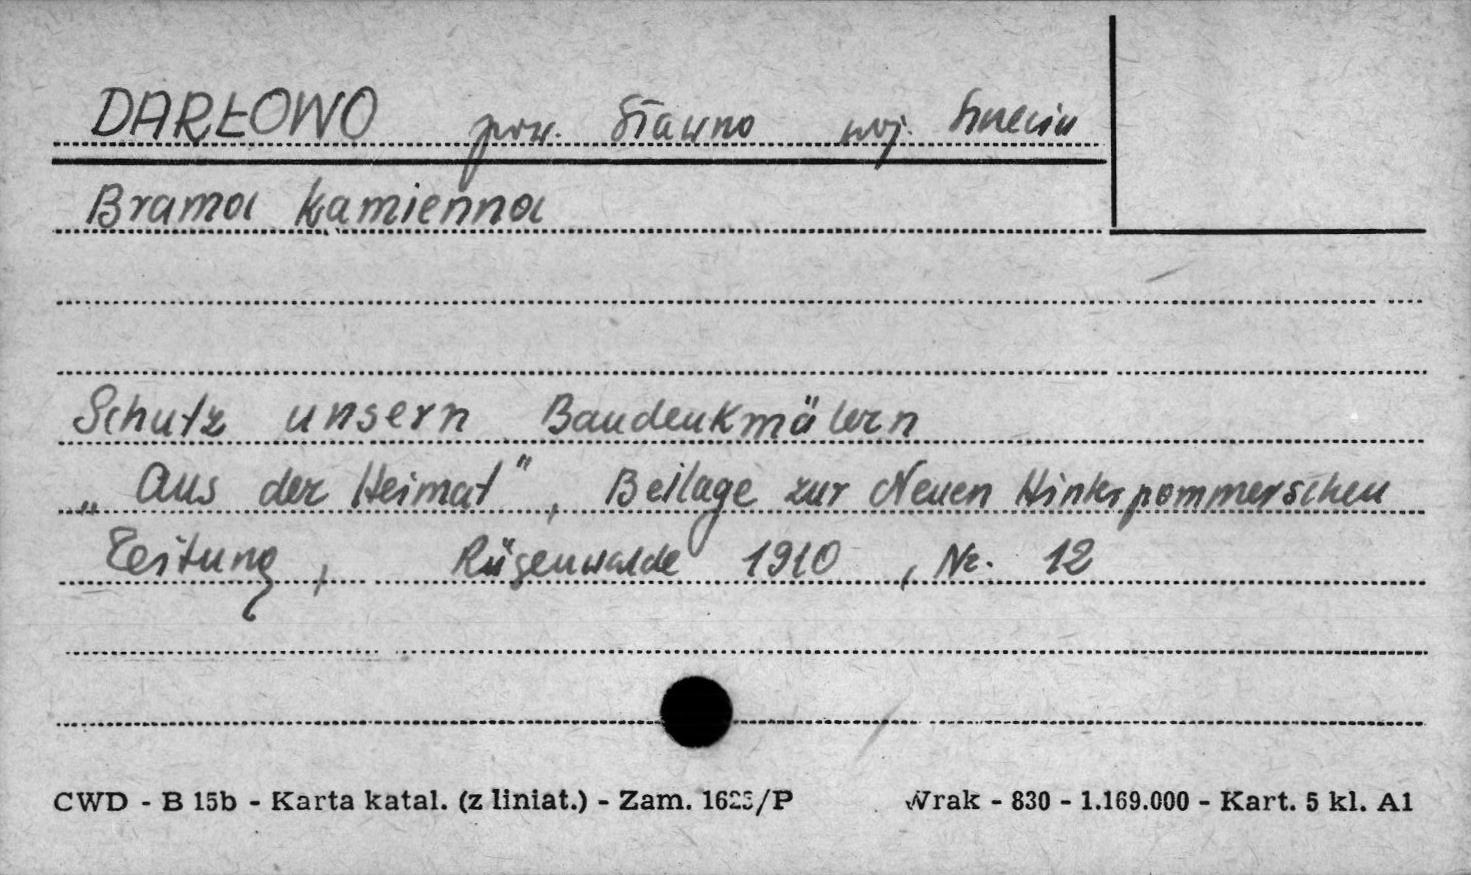 DARŁOWO pow. Sławno woj. Szczecin
Brama kamienna
Schutz unsern Baudenkmälern
„Aus der Heimat", Beilage zur Neuen Hinterpommerschen
Zeitung, Rügenwalde 1910, Nr. 12
CWD - B 15b - Karta katal. (z liniat.) - Zam. /P Wrak - 830 - 1.169.000 - Kart. 5 kl. A1